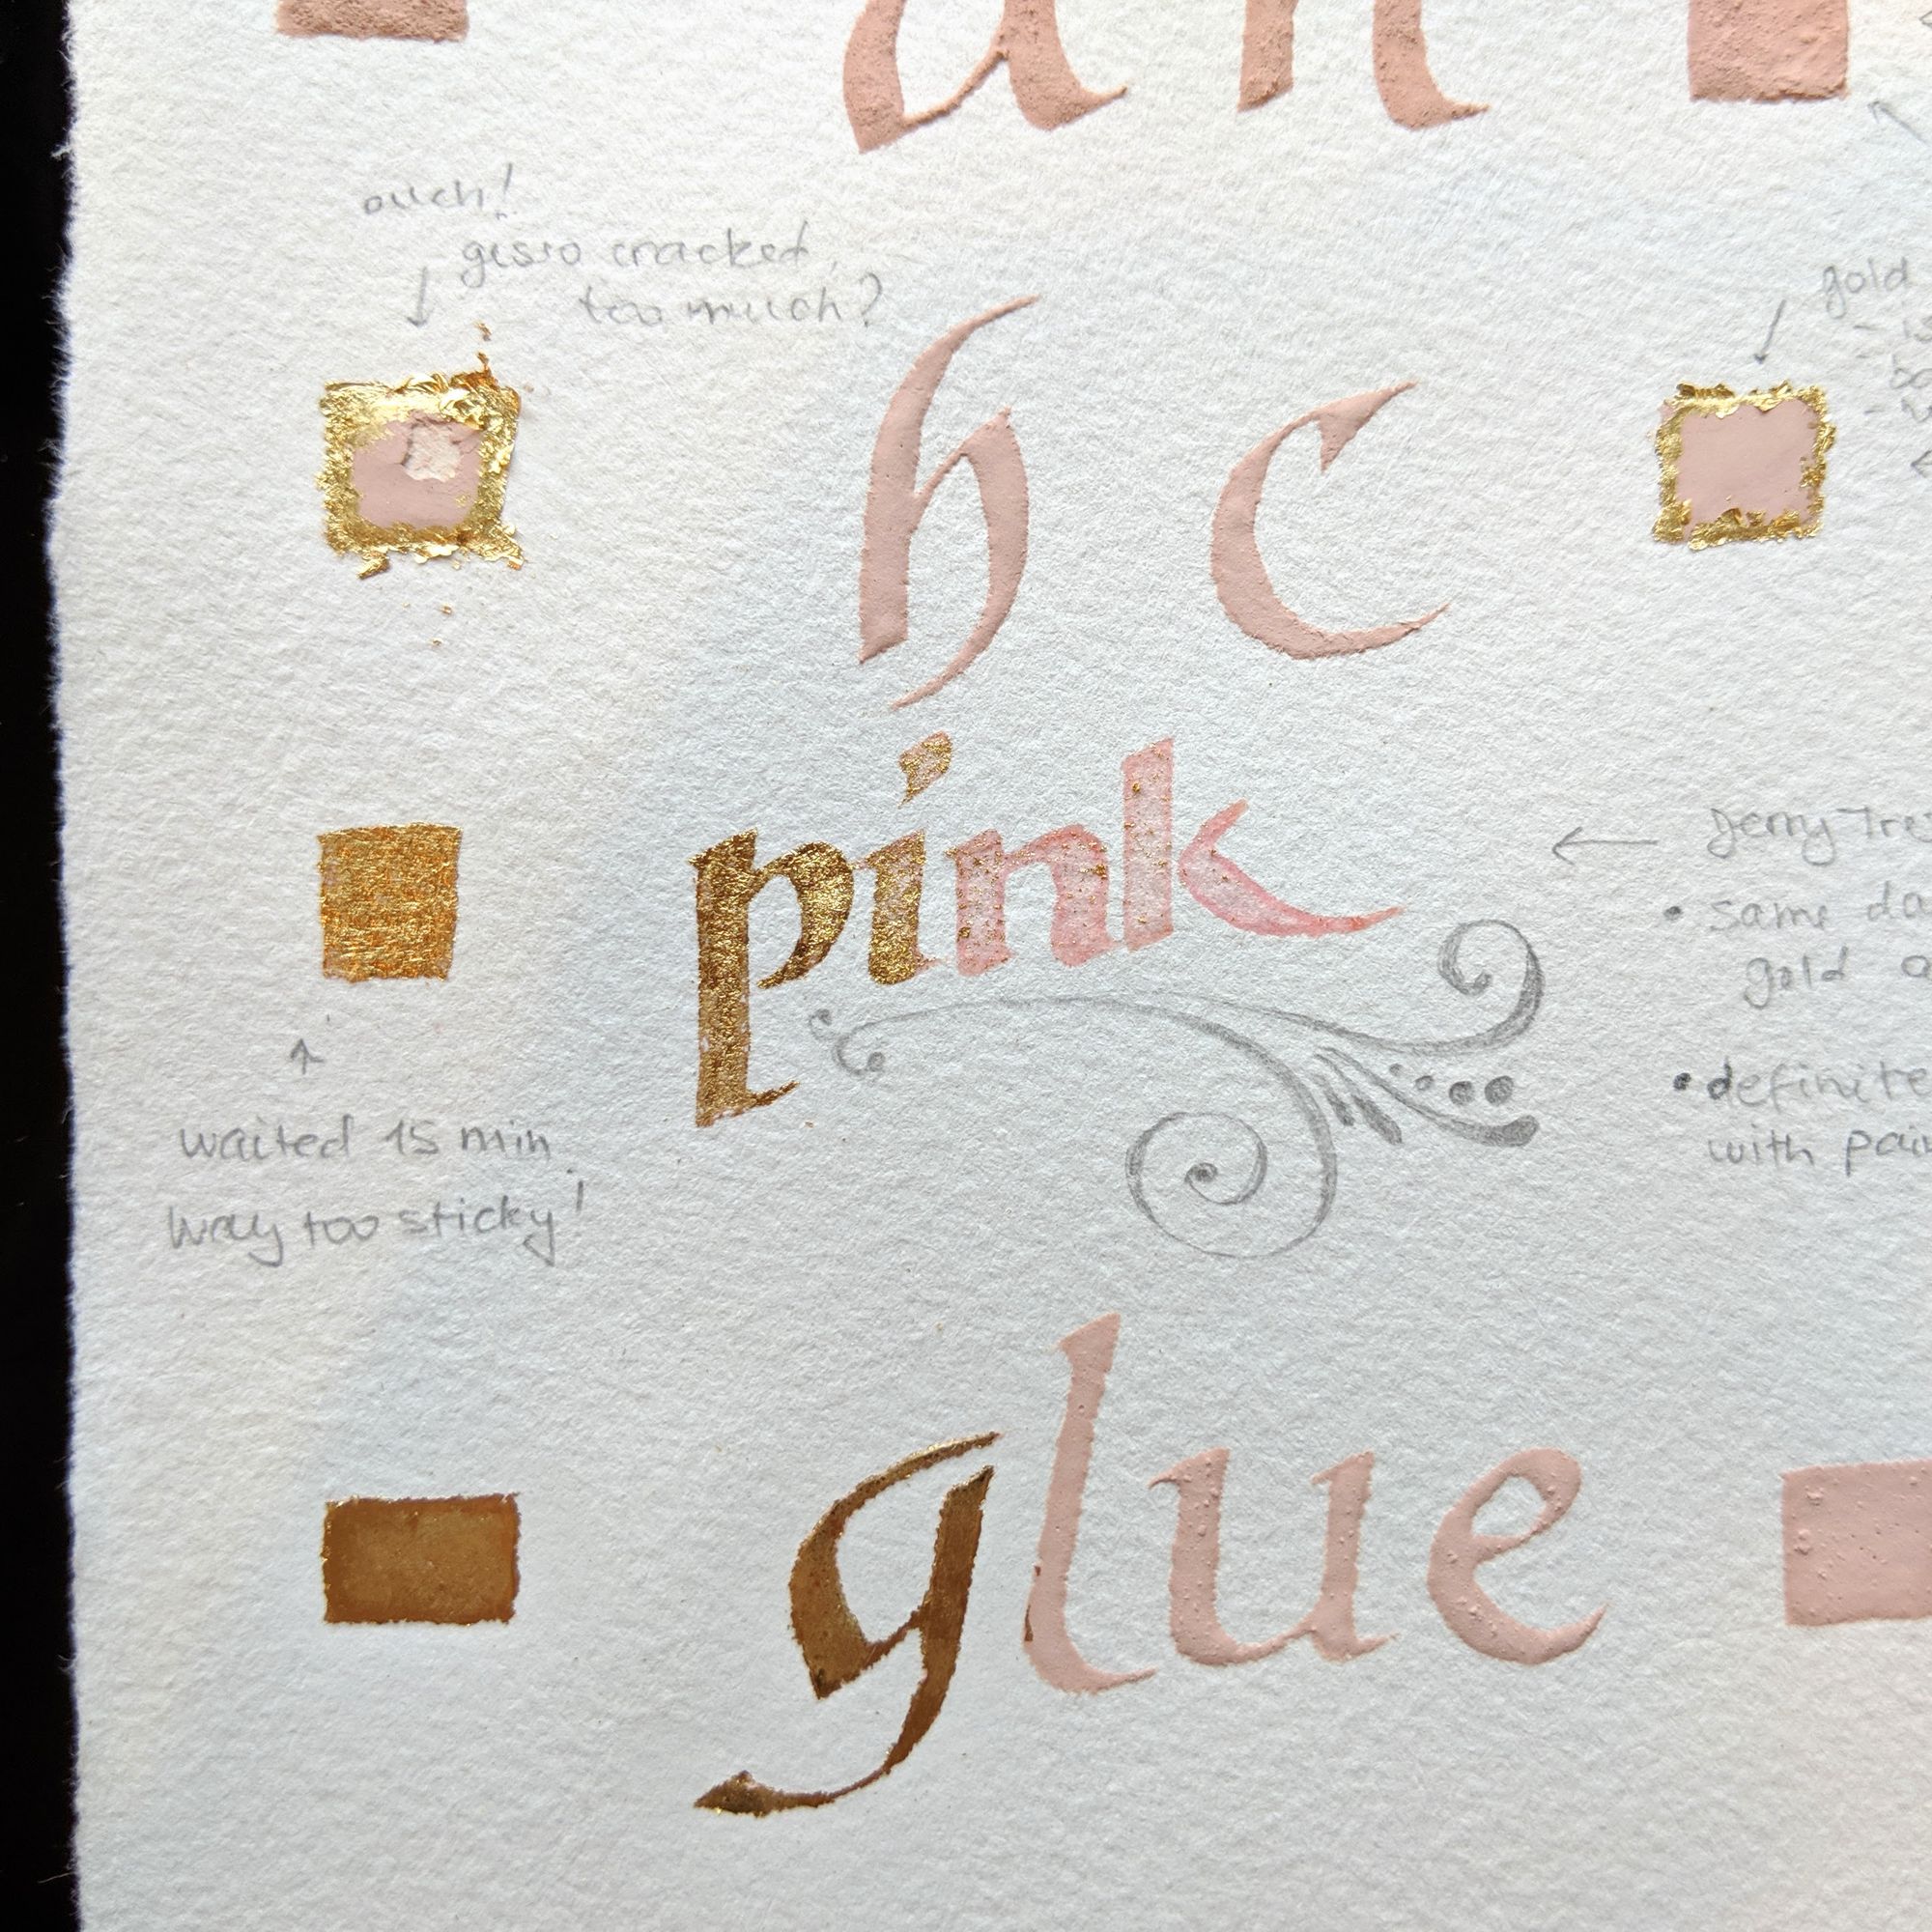 an
ouch!
gesso cracked,
too much?
gold
h c
pink
Jerry Tre
same da
gold o
definite
with pai
waited 15 min
way too sticky!
glue